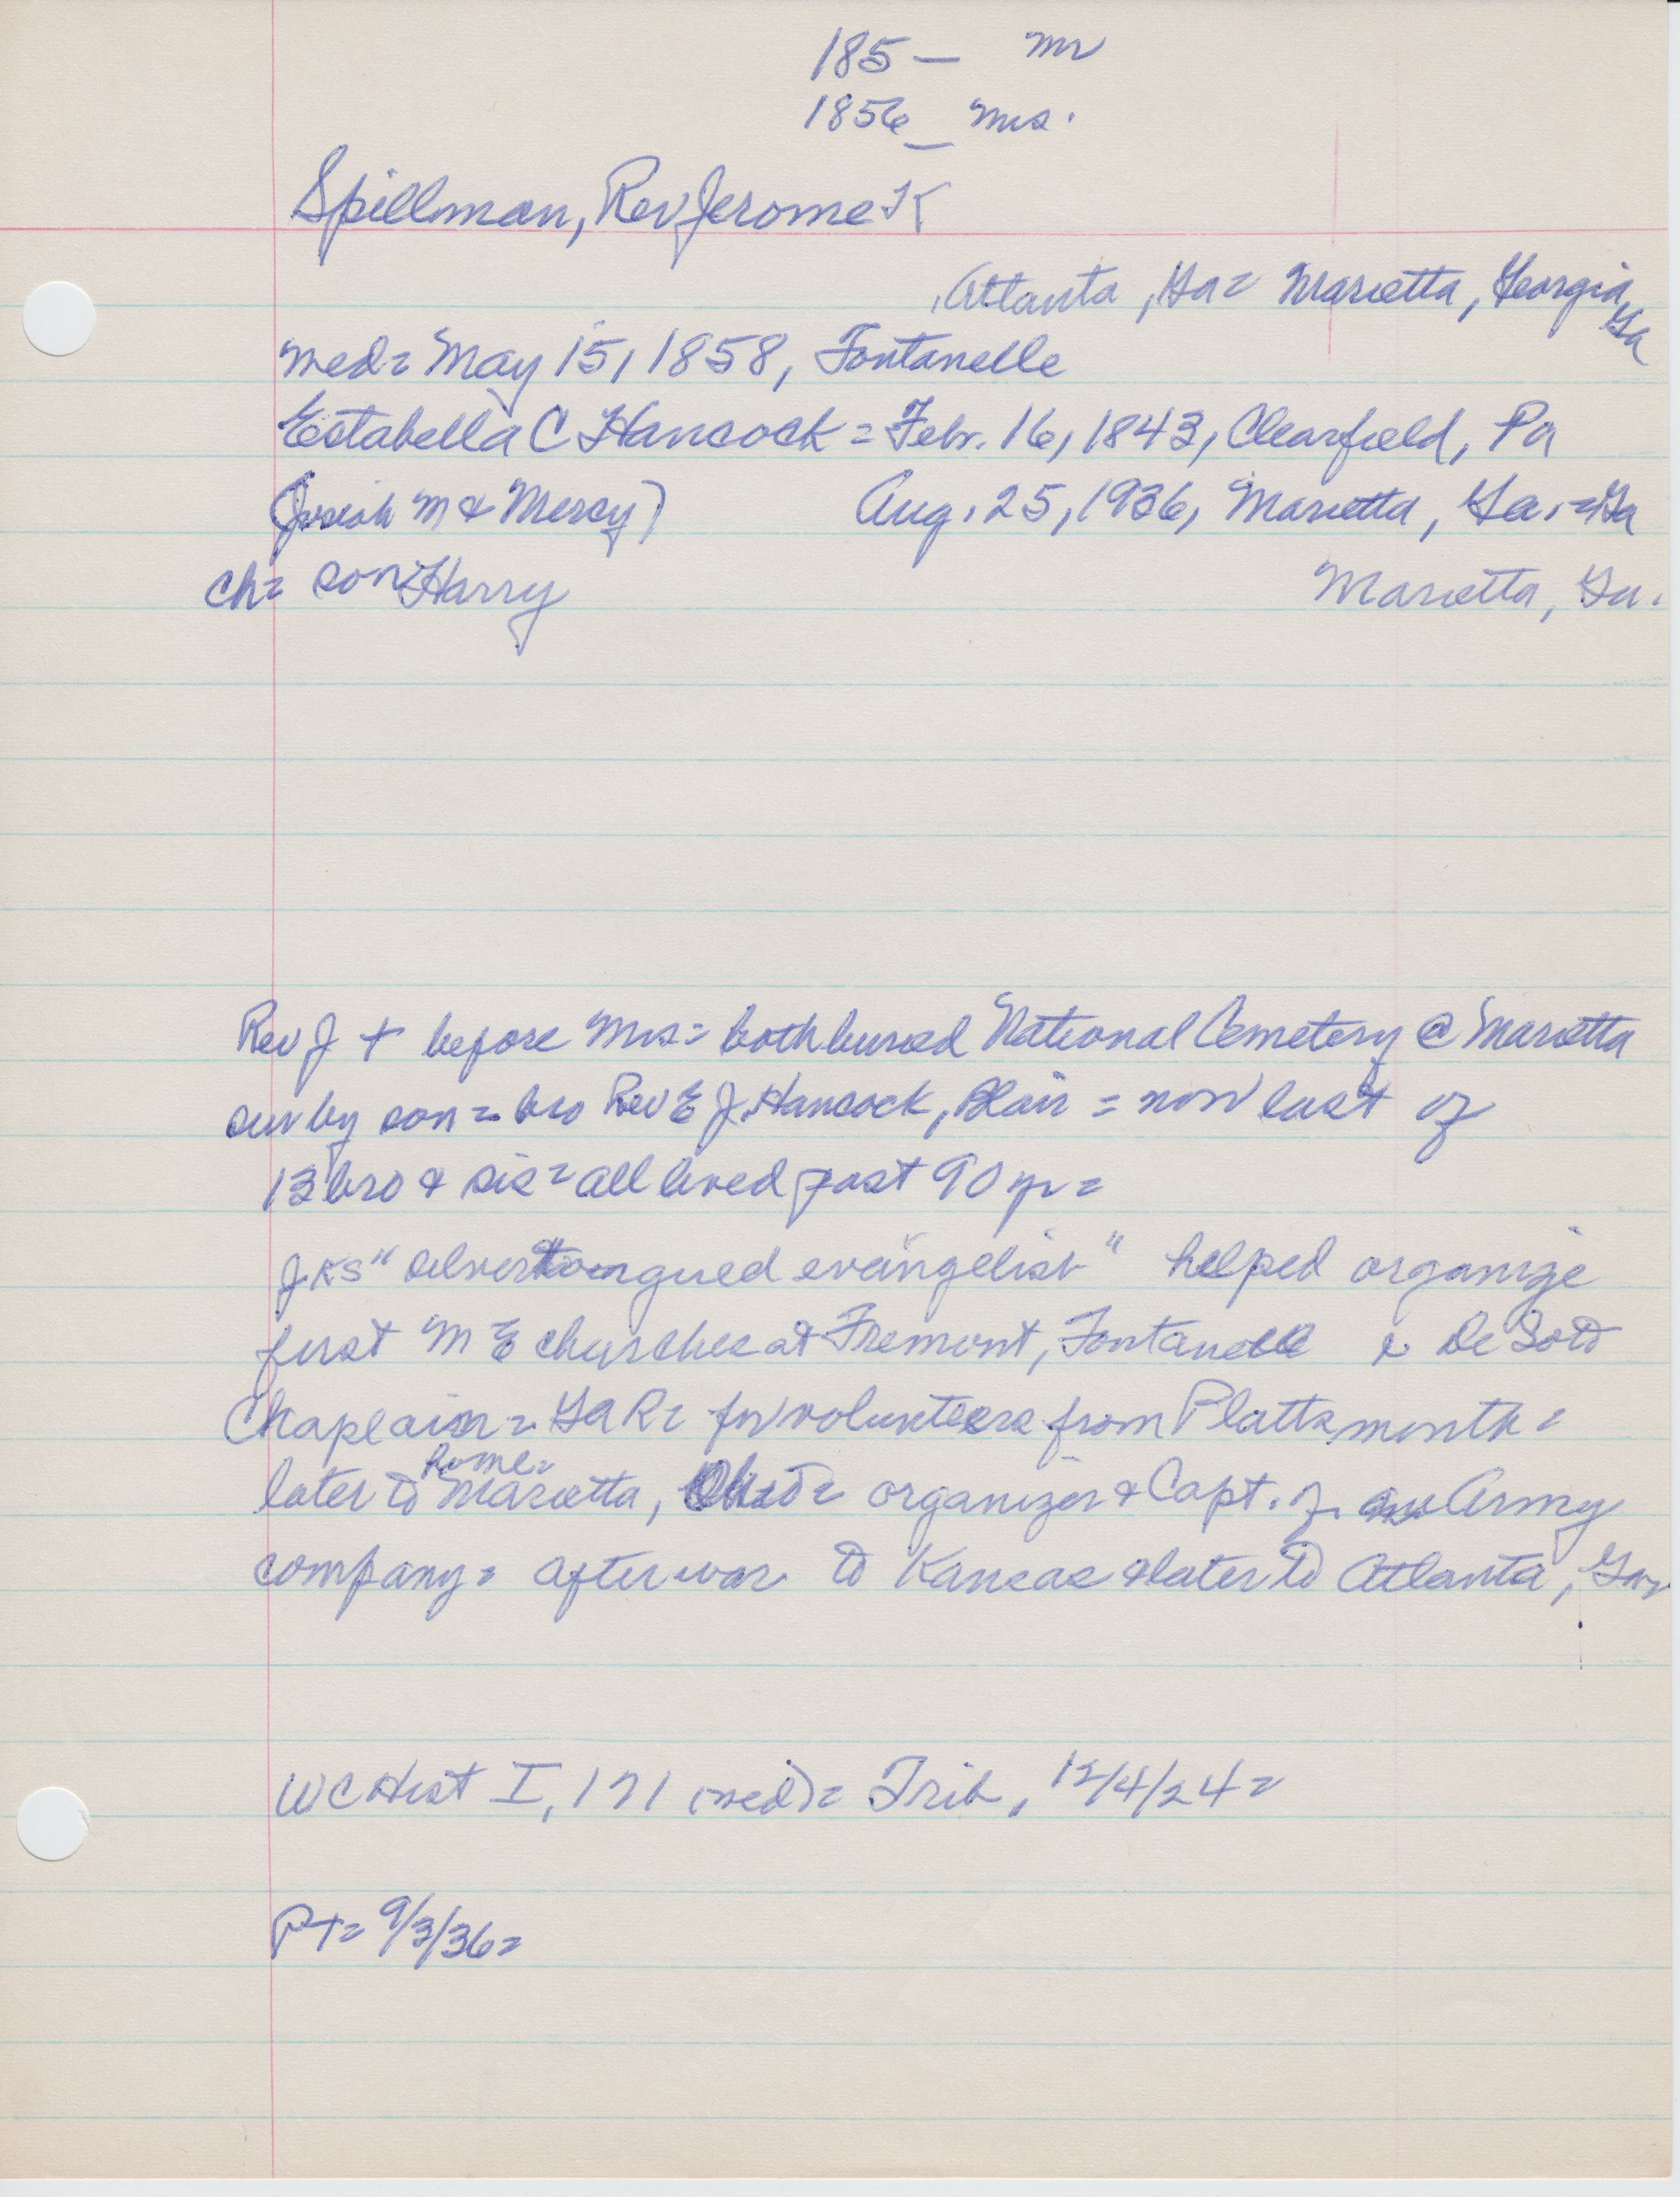 185— Mr
1856— Mrs.
Spillman, Rev Jerome K
Atlanta, Ga = Marietta, Georgia,
Ga
med = May 15, 1858, Fontanelle
Estabella C Hancock = Febr. 16, 1843, Clearfield, Pa
(Josiah M & Mercy) Aug. 25, 1936, Marietta, Ga. = Ga
ch = son Harry Marietta, Ga.
Rev J + before Mrs = both buried National Cemetery @ Marietta
sur by son = bro Rev E J. Hancock, Blair = now last of
13 bro & sis = all lived past 90 yr =
JKS "silver tongued evangelist" helped organize
first M E churches at Fremont, Fontanelle & De Soto
Chaplain = GAR = for volunteers from Plattsmouth =
Rome =
later to Marietta, = organizer & Capt. of Army
company = after war to Kansas & later to Atlanta, Ga
WC Hist I, 171 (med) = Trib, 12/4/24 =
PT = 9/3/36 =